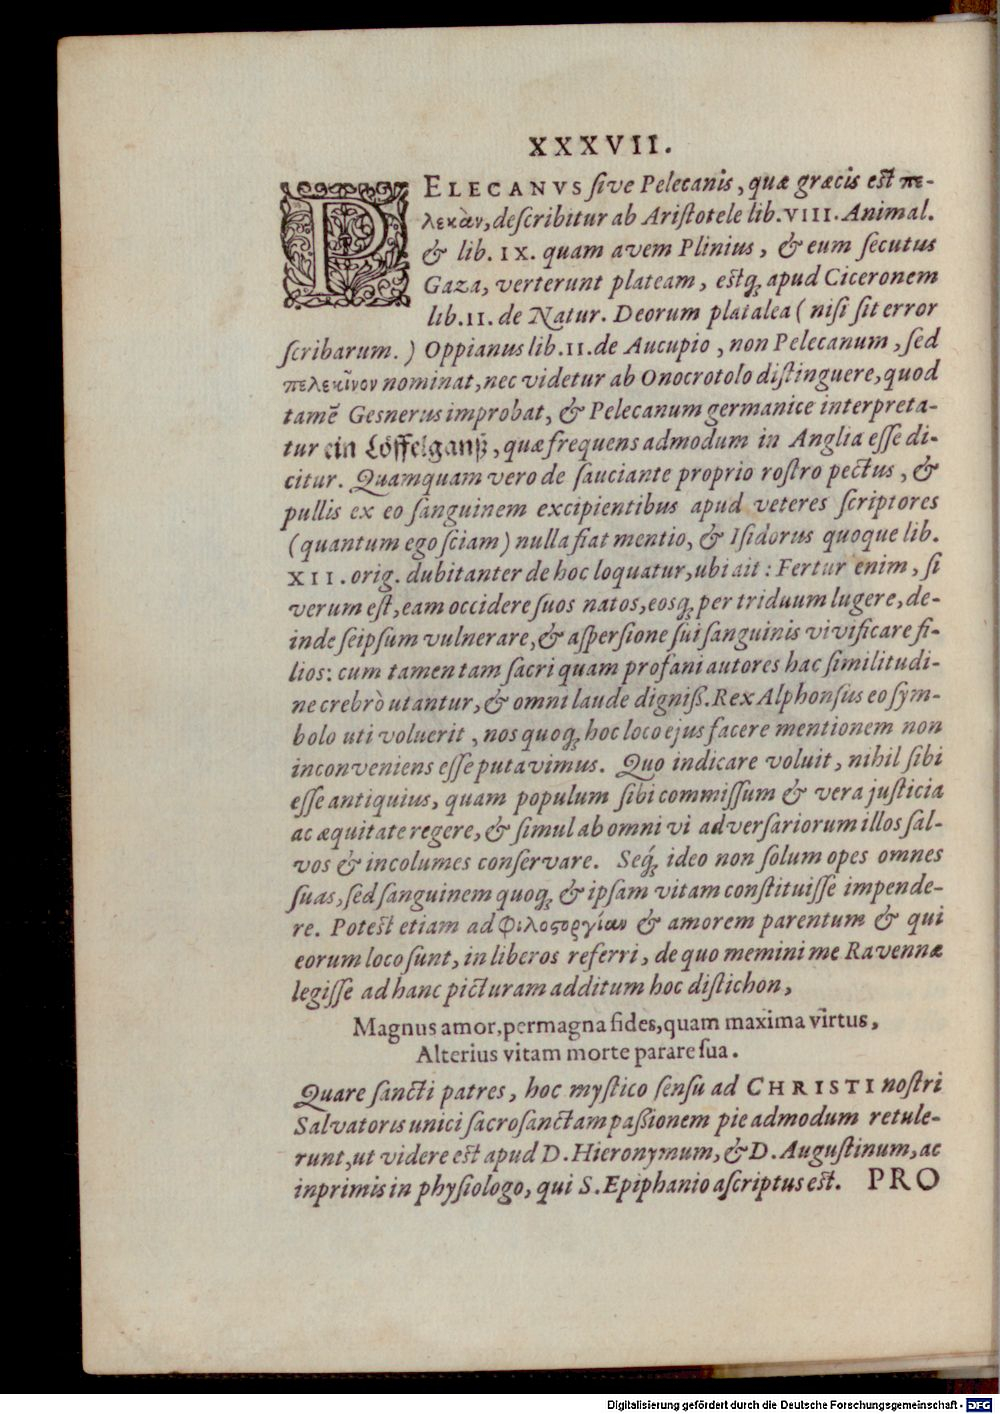 XXXVII.
PELECANVS ſive Pelecanis, quæ græcis eſt πε-
λεκὰν, deſcribitur ab Ariſtotele lib. VIII. Animal.
& lib. IX. quam avem Plinius, & eum ſecutus
Gaza, verterunt plateam, eſtq́ꝫ apud Ciceronem
lib. II. de Natur. Deorum platalea ( niſi ſit error
ſcribarum. ) Oppianus lib. II. de Aucupio, non Pelecanum, ſed
πελεκῖνον nominat, nec videtur ab Onocrotolo diſtinguere, quod
tamẽ Geſnerus improbat, & Pelecanum germanice interpreta-
tur ein Löffelganß, quæ frequens admodum in Anglia eſſe di-
citur. Quamquam vero de ſauciante proprio roſtro pectus, &
pullis ex eo ſanguinem excipientibus apud veteres ſcriptores
(quantum ego ſciam) nulla fiat mentio, & Iſidorus quoque lib.
XII. orig. dubitanter de hoc loquatur, ubi ait: Fertur enim, ſi
verum eſt, eam occidere ſuos natos, eosq́ꝫ per triduum lugere, de-
inde ſeipſum vulnerare, & aſperſione ſui ſanguinis vivificare fi-
lios: cum tamen tam ſacri quam profani autores hac ſimilitudi-
ne crebrò utantur, & omni laude digniß. Rex Alphonſus eo ſym-
bolo uti voluerit, nos quoqꝫ hoc loco ejus facere mentionem non
inconveniens eſſe putavimus. Quo indicare voluit, nihil ſibi
eſſe antiquius, quam populum ſibi commiſſum & vera juſticia
ac æquitate regere, & ſimul ab omni vi adverſariorum illos ſal-
vos & incolumes conſervare. Seq́ꝫ ideo non ſolum opes omnes
ſuas, ſed ſanguinem quoqꝫ & ipſam vitam conſtituiſſe impende-
re. Poteſt etiam ad φιλοϛοργίαν & amorem parentum & qui
eorum loco ſunt, in liberos referri, de quo memini me Ravennæ
legiſſe ad hanc picturam additum hoc diſtichon,
Magnus amor, permagna fides, quam maxima virtus,
Alterius vitam morte parare ſua.
Quare ſancti patres, hoc myſtico ſenſu ad CHRISTI noſtri
Salvatoris unici ſacroſanctam paßionem pie admodum retule-
runt, ut videre eſt apud D. Hieronymum, & D. Auguſtinum, ac
inprimis in phyſiologo, qui S. Epiphanio aſcriptus eſt. PRO
Digitalisierung gefördert durch die Deutsche Forschungsgemeinschaft - DFG